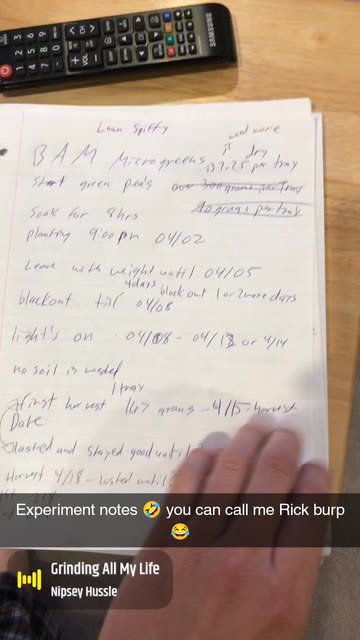 SAMSUNG
Lawn Spiffy
need more
BAM Microgreens dry
137.25 per tray
Start green pea's over 300 grams per tray
Soak for 8hrs 40 grams per tray
planting 9:00 pm 04/02
Leave with weight until 04/05
4days
blackout till 04/08 blackout 1 or 2 more days
light's on 04/08 - 04/13 or 4/14
no soil is needed
1 tray
first harvest 167 grams - 4/15 - harvest
Date
lasted and stayed good until
Harvest 4/18 - lasted until
Experiment notes 🤣 you can call me Rick burp
😂
Grinding All My Life
Nipsey Hussle